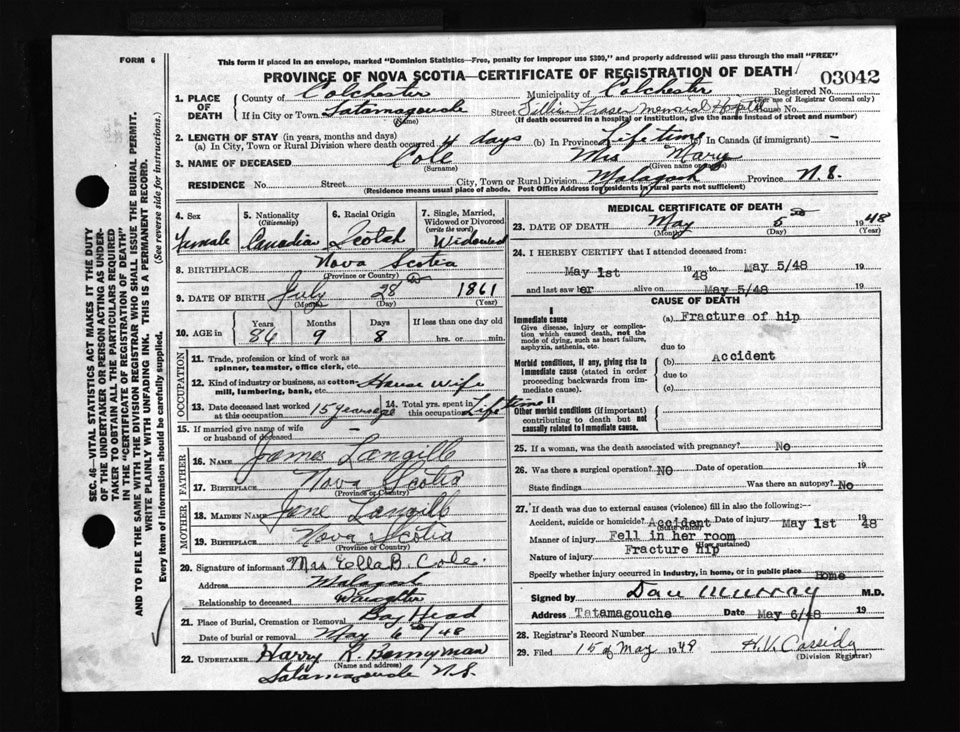 FORM 6
This form if placed in an envelope, marked "Dominion Statistics—Free, penalty for improper use $300," and properly addressed will pass through the mail "FREE"
PROVINCE OF NOVA SCOTIA—CERTIFICATE OF REGISTRATION OF DEATH
03042
1. PLACE OF DEATH
County of Colchester Municipality of Colchester Registered No.
(For use of Registrar General only)
If in City or Town Tatamagouche Street Lillian Fraser Memorial Hospital House No.
(Name) (If death occurred in a hospital or institution, give the name instead of street and number)
2. LENGTH OF STAY (in years, months and days)
(a) In City, Town or Rural Division where death occurred 4 days (b) In Province Life time (c) In Canada (if immigrant) —
3. NAME OF DECEASED Cole Mrs Mary
(Surname) (Given name or names)
RESIDENCE No. Street City, Town or Rural Division Malagash Province N.S.
(Residence means usual place of abode. Post Office Address for residents in rural parts not sufficient)
4. Sex Female
5. Nationality (Citizenship) Canadian
6. Racial Origin Scotch
7. Single, Married, Widowed or Divorced (write the word) Widowed
8. BIRTHPLACE Nova Scotia
(Province or Country)
9. DATE OF BIRTH July 28 1861
(Month) (Day) (Year)
10. AGE in Years Months Days If less than one day old
86 9 8 hrs. or min.
OCCUPATION
11. Trade, profession or kind of work as spinner, teamster, office clerk, etc.
12. Kind of industry or business, as cotton mill, lumbering, bank, etc. House Wife
13. Date deceased last worked at this occupation 15 years ago
14. Total yrs. spent in this occupation Life time
15. If married give name of wife or husband of deceased —
FATHER
16. NAME James Langille
17. BIRTHPLACE Nova Scotia
(Province or Country)
MOTHER
18. MAIDEN NAME Jane Langille
19. BIRTHPLACE Nova Scotia
(Province or Country)
20. Signature of informant Mrs Ella B. Cole.
Address Malagash
Relationship to deceased Daughter
21. Place of Burial, Cremation or Removal Bay Head
Date of burial or removal May 6th/48
22. UNDERTAKER Harry R. Bonnyman
(Name and address)
Tatamagouche N.S.
MEDICAL CERTIFICATE OF DEATH
23. DATE OF DEATH May 5th 1948
(Month) (Day) (Year)
24. I HEREBY CERTIFY that I attended deceased from:
May 1st 1948 to May 5/48
and last saw her alive on May 5/48
CAUSE OF DEATH
I
Immediate cause (a) Fracture of hip
Give disease, injury or complication which caused death, not the mode of dying, such as heart failure, asphyxia, asthenia, etc.
due to
Morbid conditions, if any, giving rise to immediate cause (stated in order proceeding backwards from immediate cause).
(b) Accident
due to
(c)
II
Other morbid conditions (if important) contributing to death but not causally related to immediate cause.
25. If a woman, was the death associated with pregnancy? No
26. Was there a surgical operation? NO Date of operation 19
State findings Was there an autopsy? No
27. If death was due to external causes (violence) fill in also the following:—
Accident, suicide or homicide? Accident Date of injury May 1st 1948
(State which)
Manner of injury Fell in her room
(How sustained)
Nature of injury Fracture hip
Specify whether injury occurred in industry, in home, or in public place Home
Signed by Dan Murray M.D.
Address Tatamagouche Date May 6/48 19
28. Registrar's Record Number
29. Filed 15 of May 1948 H.V. Cassidy
(Division Registrar)
SEC. 46—VITAL STATISTICS ACT MAKES IT THE DUTY
OF THE UNDERTAKER OR PERSON ACTING AS UNDERTAKER
TO OBTAIN ALL THE PARTICULARS REQUIRED
IN THE "CERTIFICATE OF REGISTRATION OF DEATH"
AND TO FILE THE SAME WITH THE DIVISION REGISTRAR WHO SHALL ISSUE THE BURIAL PERMIT.
WRITE PLAINLY WITH UNFADING INK. THIS IS A PERMANENT RECORD.
Every item of information should be carefully supplied. (See reverse side for instructions.)